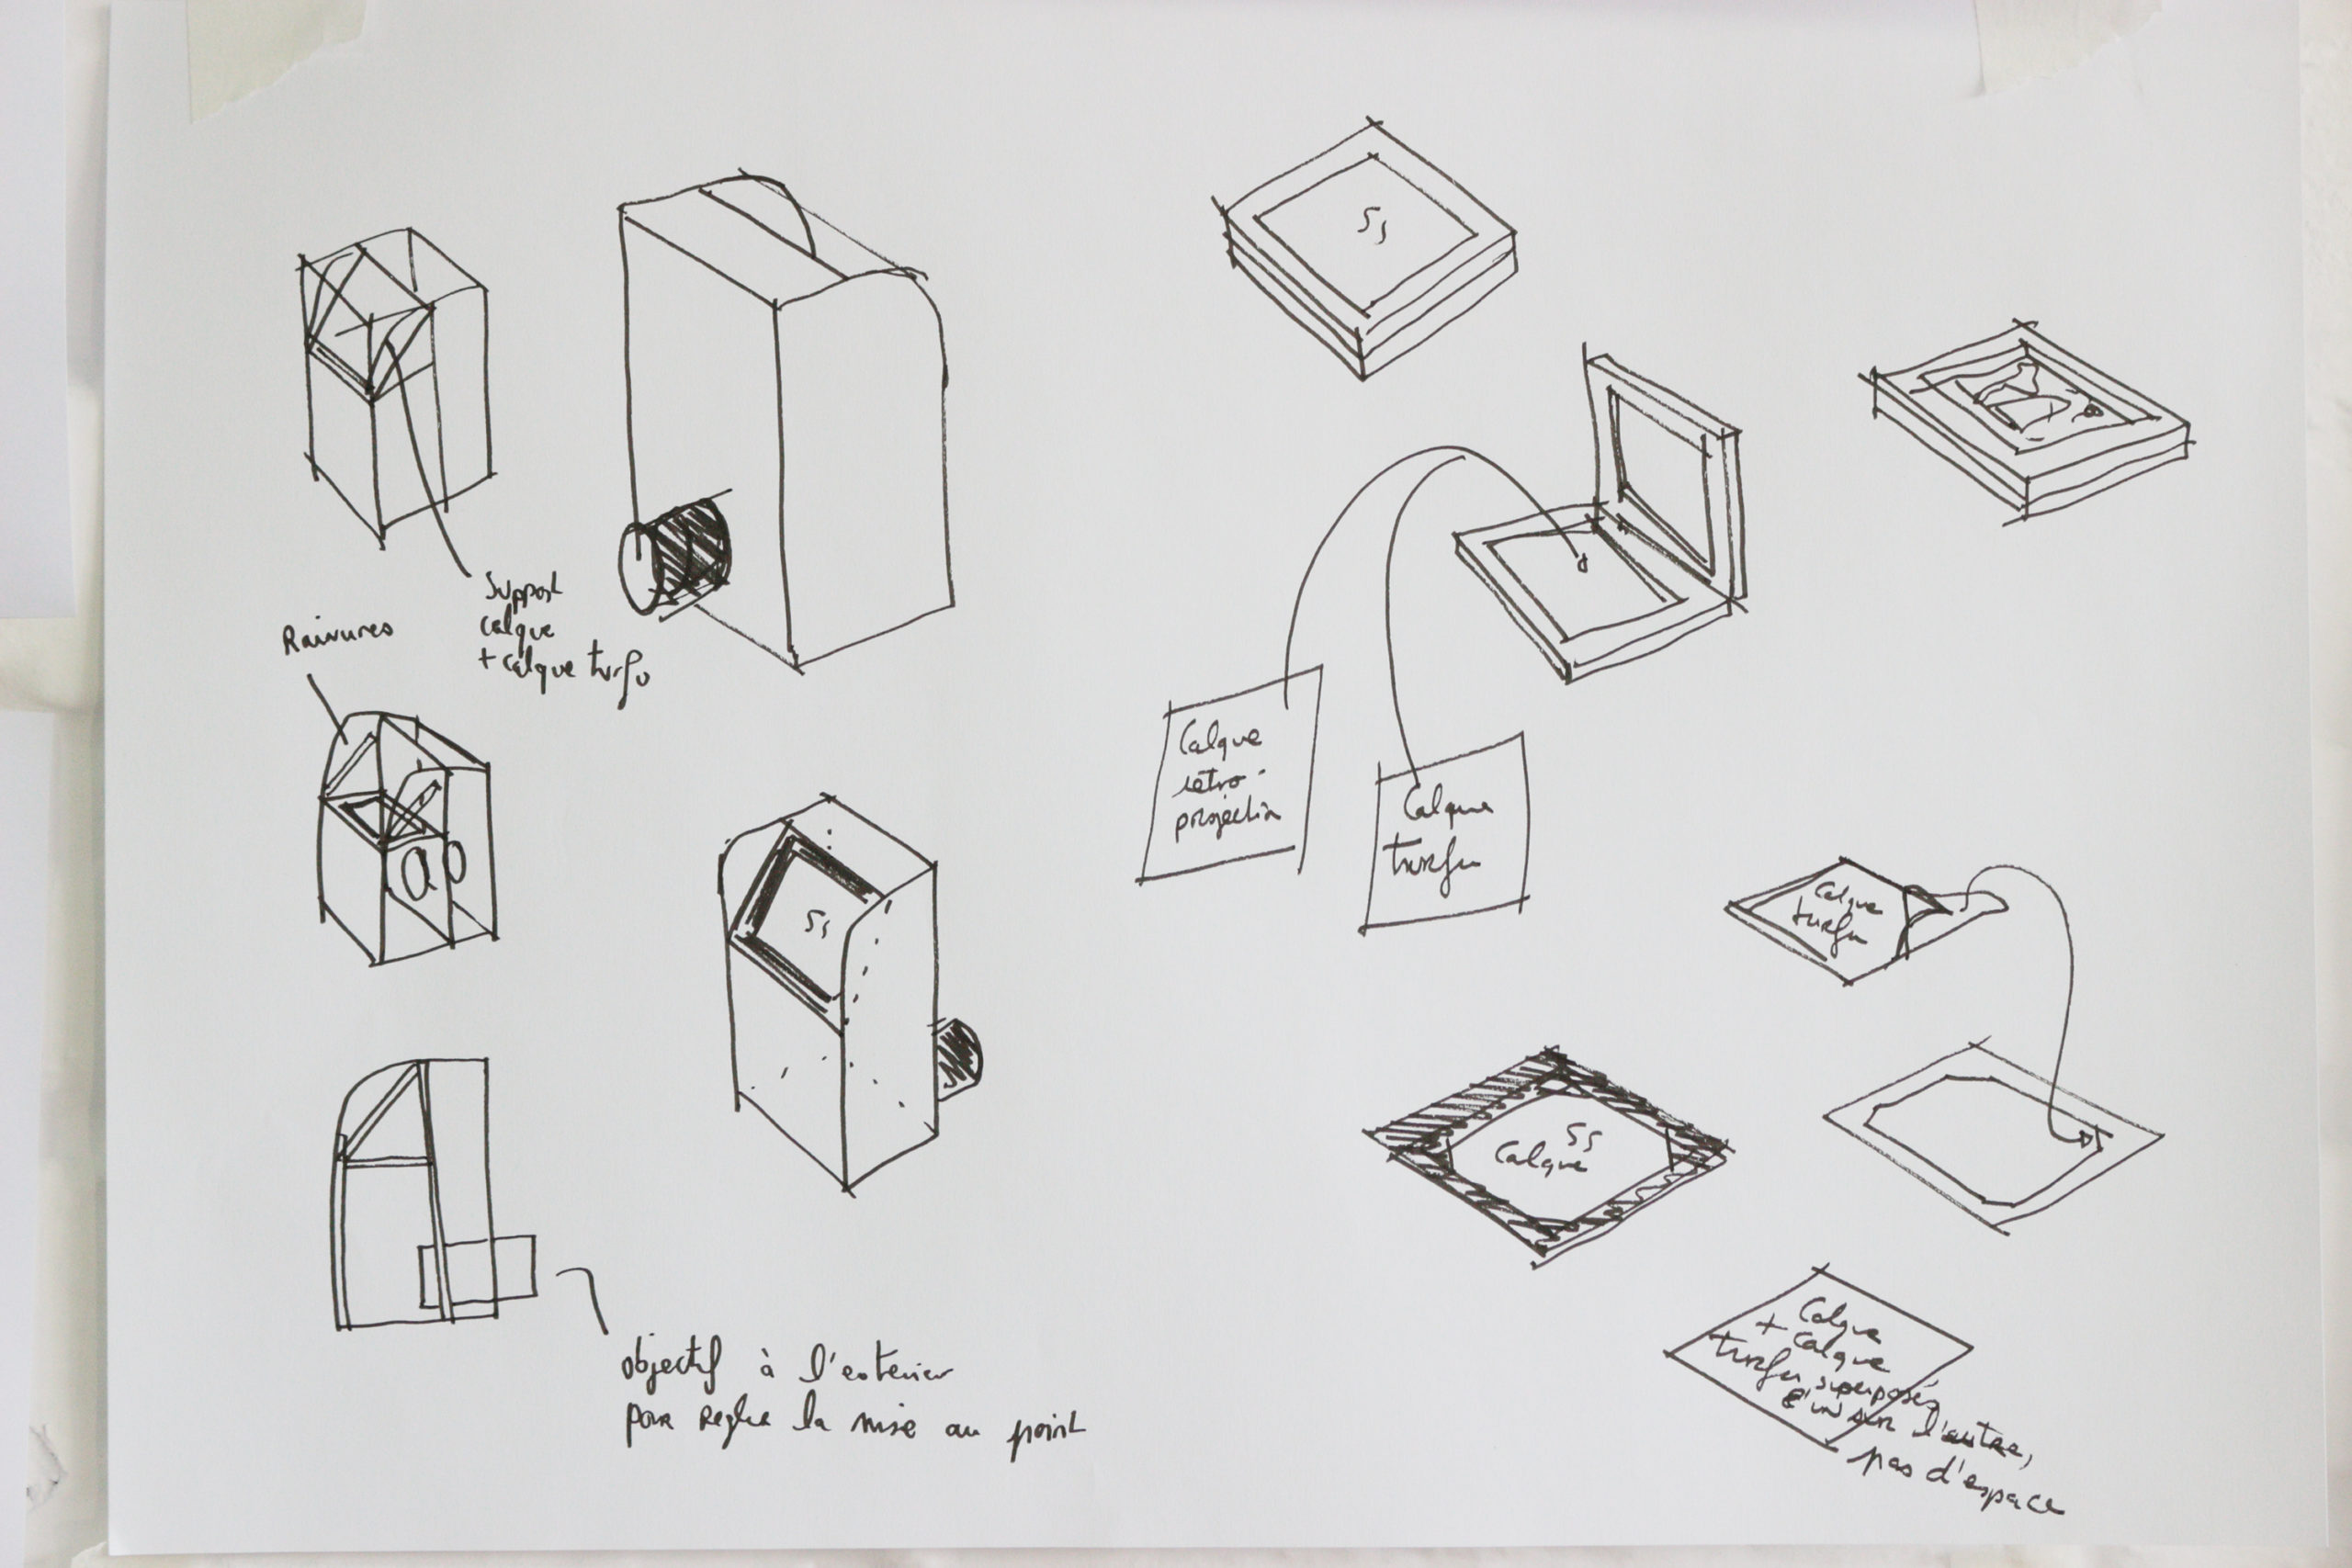 Support
calque
+ calque turfu
Rainures
objectif à l'extérieur
pour régler la mise au point
Calque
rétro-
projection
Calque
turfu
Calque
turfu
Calque
Calque
+ Calque
turfu superposés
l'un sur l'autre,
pas d'espace